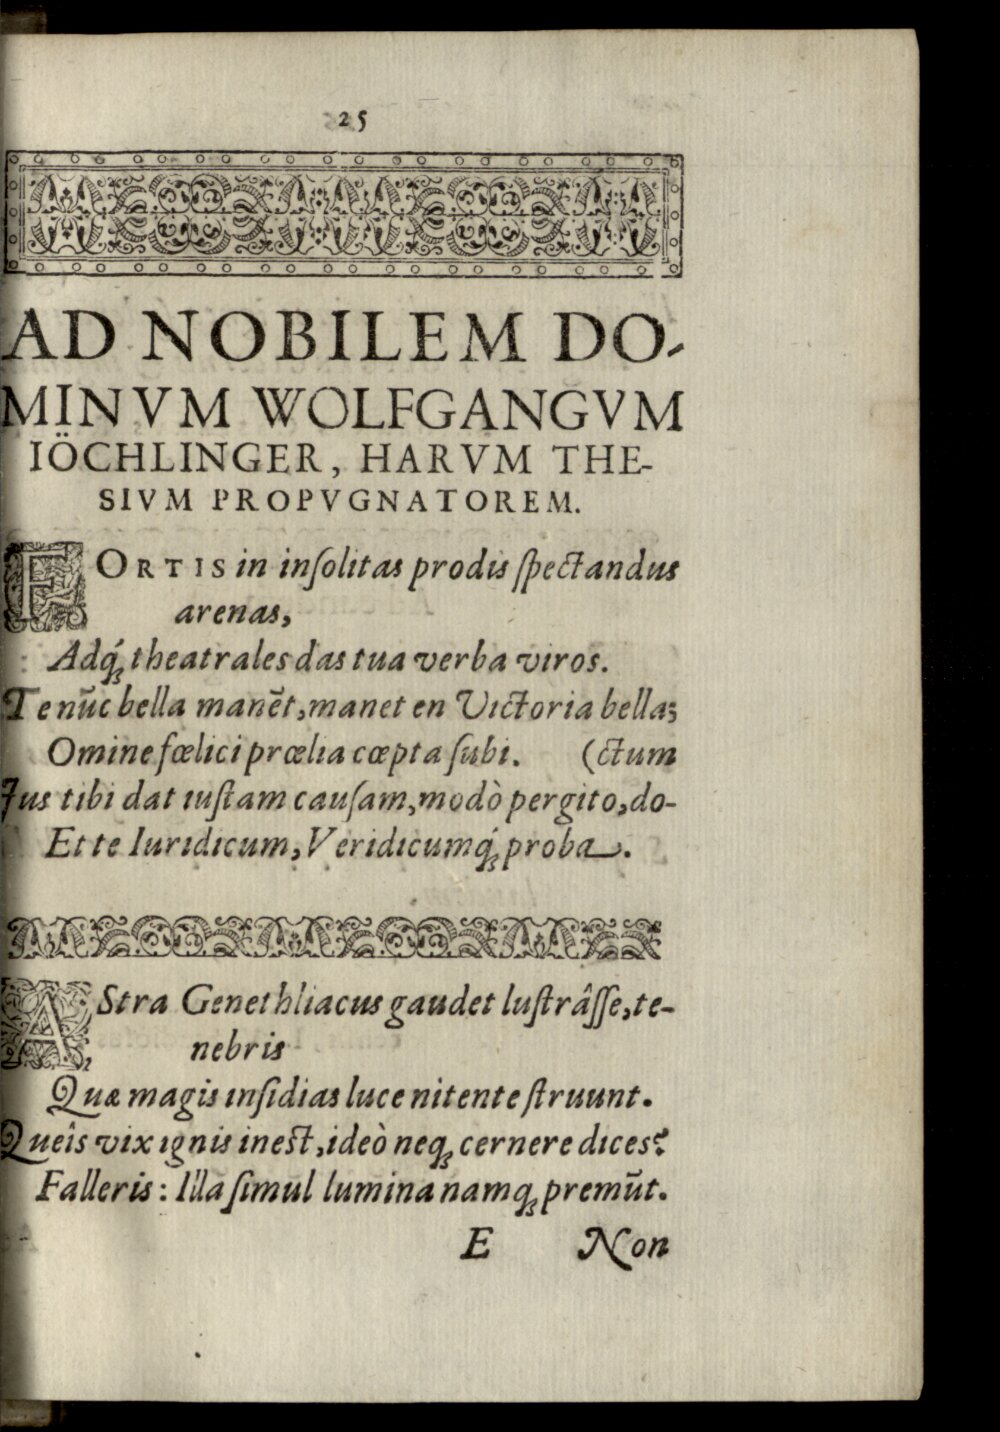 25
AD NOBILEM DO-
MINVM WOLFGANGVM
IÖCHLINGER, HARVM THE-
SIVM PROPVGNATOREM.
FORTIS in inſolitas prodis ſpectandus
arenas,
Adq́; theatrales das tua verba viros.
Te nūc bella manēt, manet en Victoria bella;
Omine fœlici prœlia cœpta ſubi. (ctum
Jus tibi dat iuſtam cauſam, modò pergito, do-
Et te Iuridicum, Veridicumq́; proba.
AStra Genethliacus gaudet luſtrâſſe, te-
nebris
Quæ magis inſidias luce nitente ſtruunt.
Queîs vix ignis ineſt, ideò neq; cernere dices?
Falleris: Illa ſimul lumina namq; premūt.
E Non